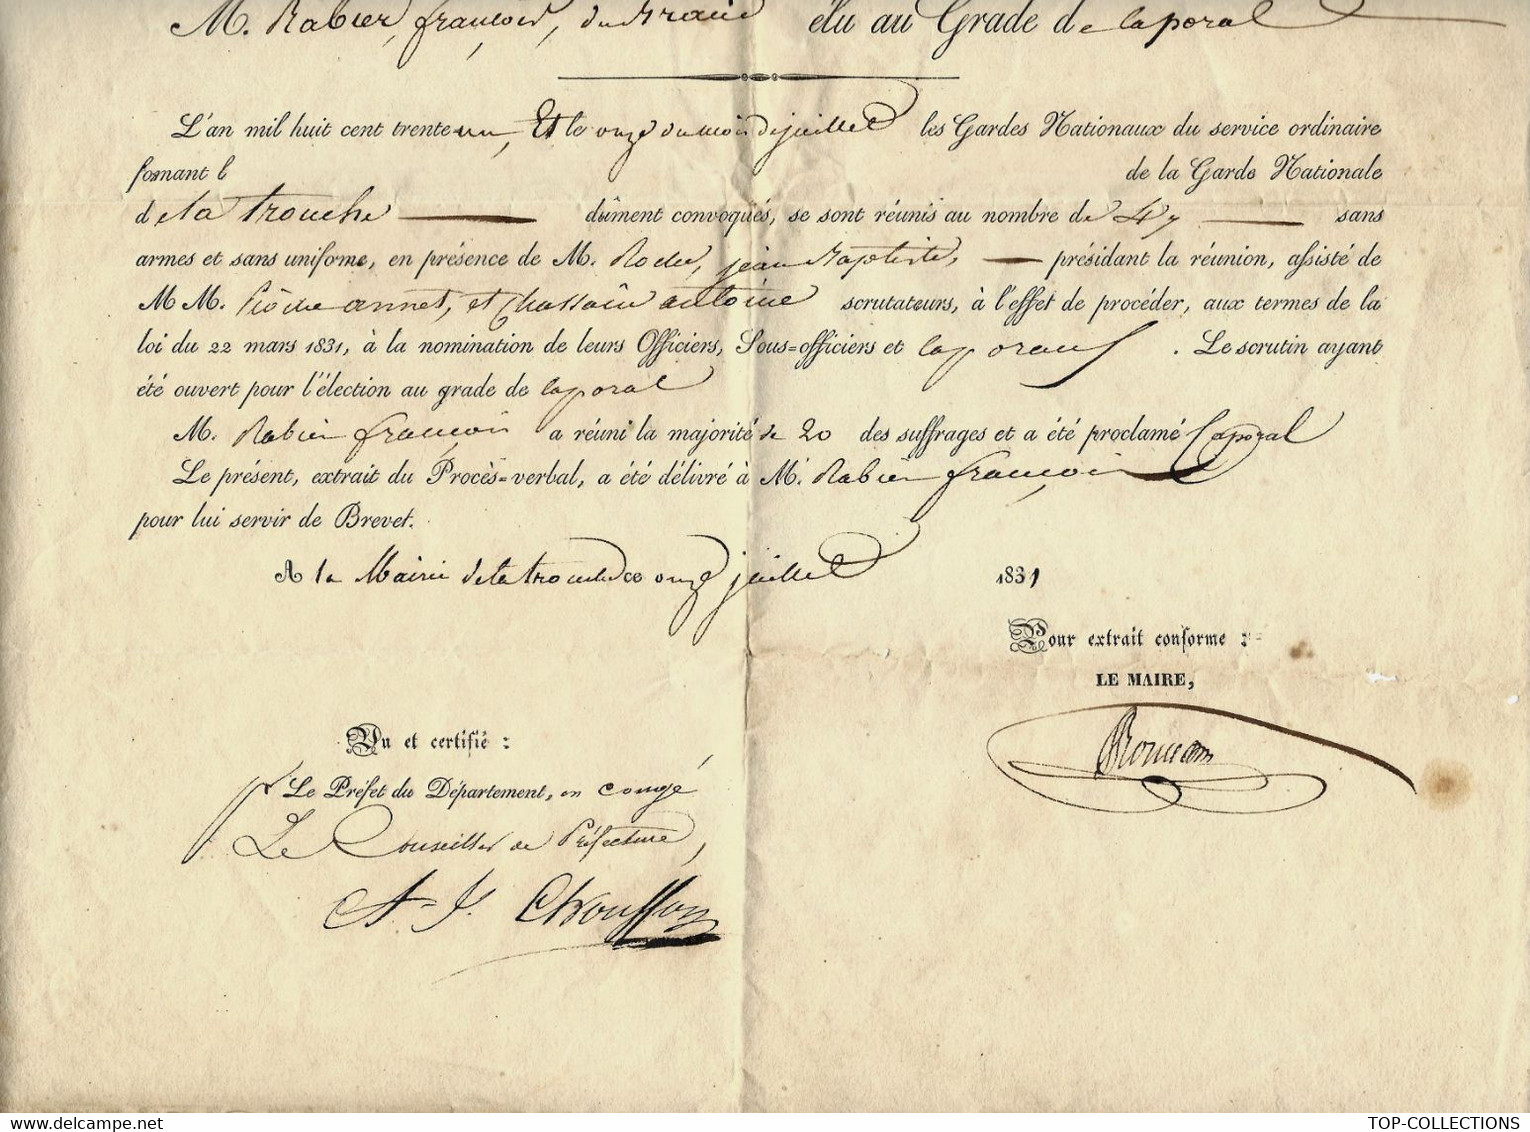 M. Rabier, françois, du élu au Grade de Caporal
L'an mil huit cent trente un, Et le onze du mois de juillet les Gardes Nationaux du service ordinaire
formant l de la Garde Nationale
de la trouche dûment convoqués, se sont réunis au nombre de 47 sans
armes et sans uniforme, en présence de M. Roche, jean Baptiste, présidant la réunion, assisté de
M M. annet, et Chassain antoine scrutateurs, à l'effet de procéder, aux termes de la
loi du 22 mars 1831, à la nomination de leurs Officiers, Sous-officiers et Caporaux . Le scrutin ayant
été ouvert pour l'élection au grade de Caporal
M. Rabier françois a réuni la majorité de 20 des suffrages et a été proclamé Caporal
Le présent, extrait du Procès-verbal, a été délivré à M. Rabier françois
pour lui servir de Brevet.
A la Mairie de la trouche ce onze juillet 1831
Pour extrait conforme :
LE MAIRE,
Vu et certifié :
Pr Le Préfet du Département, en congé
Le Conseiller de Préfecture,
TOP-COLLECTIONS